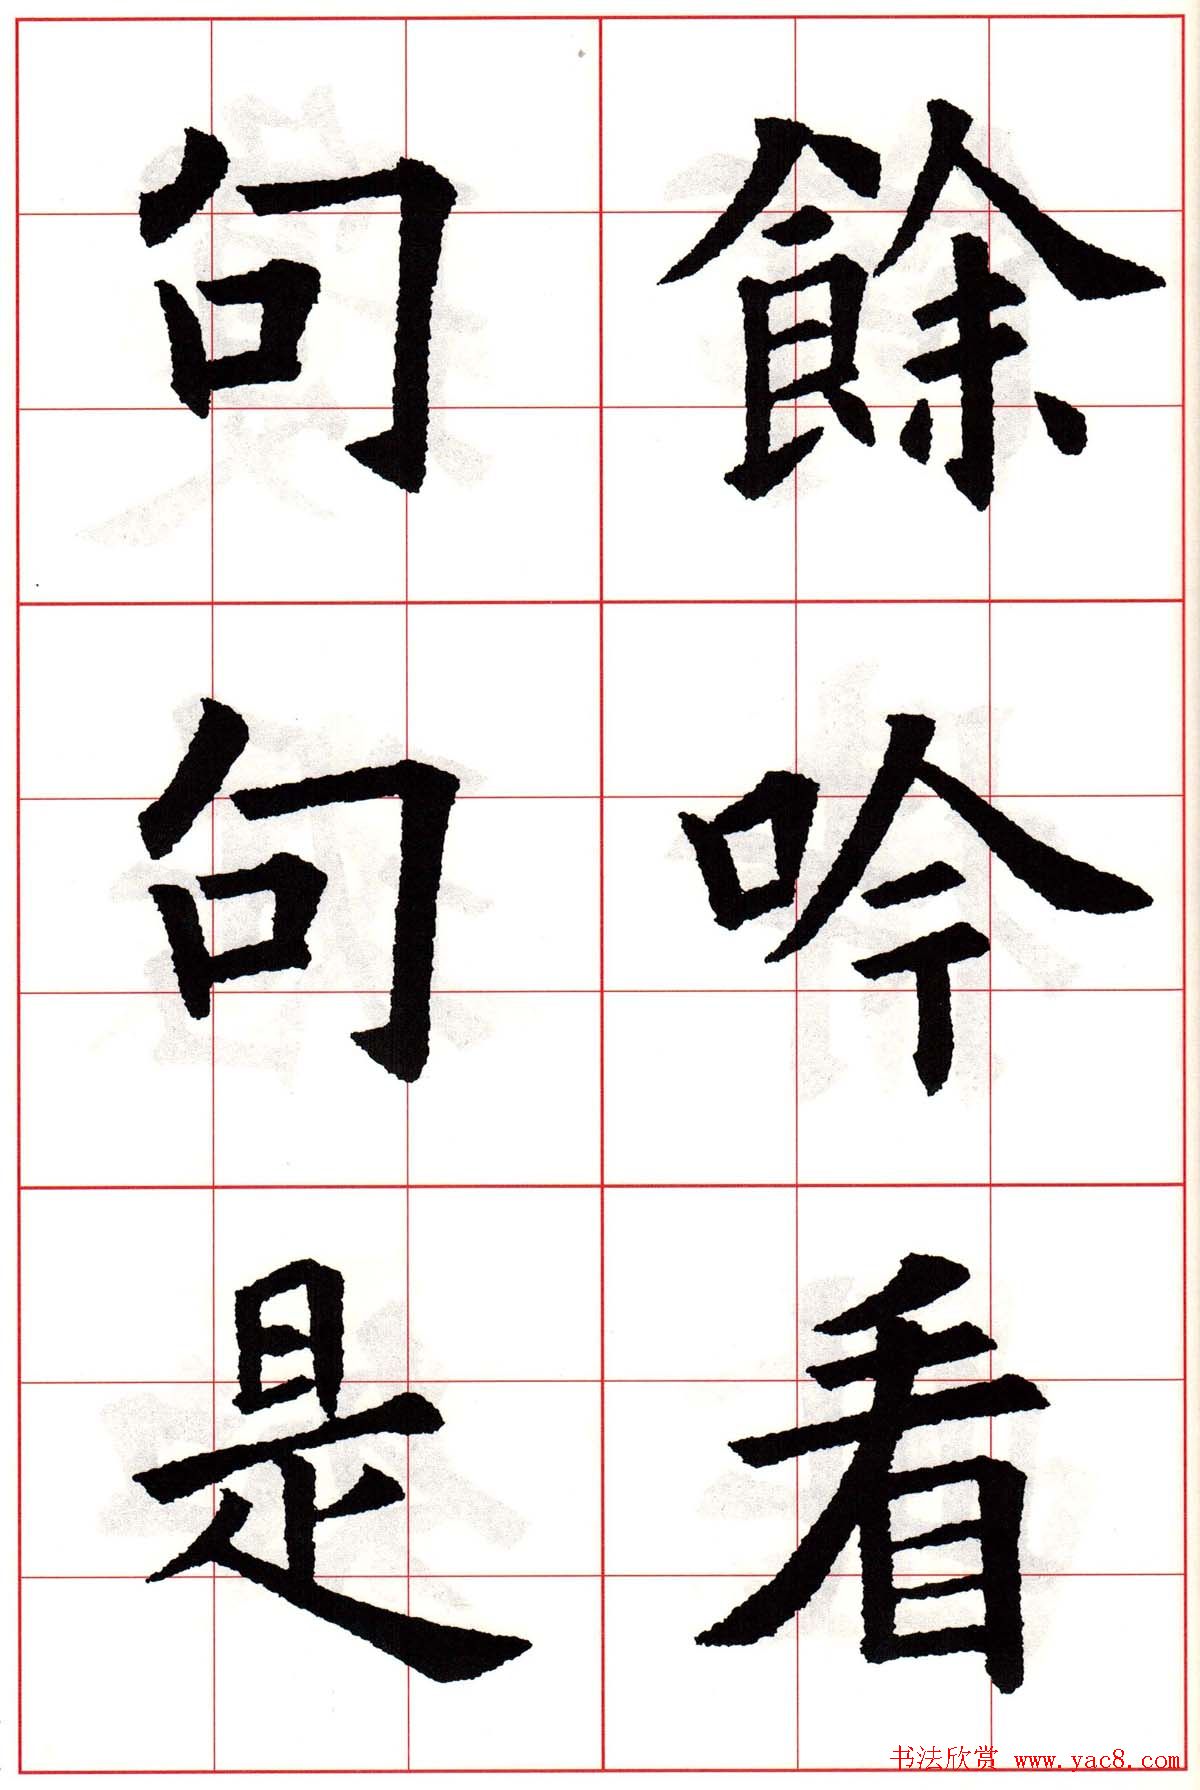 餘吟看
句句是
书法欣赏 www.yac8.com